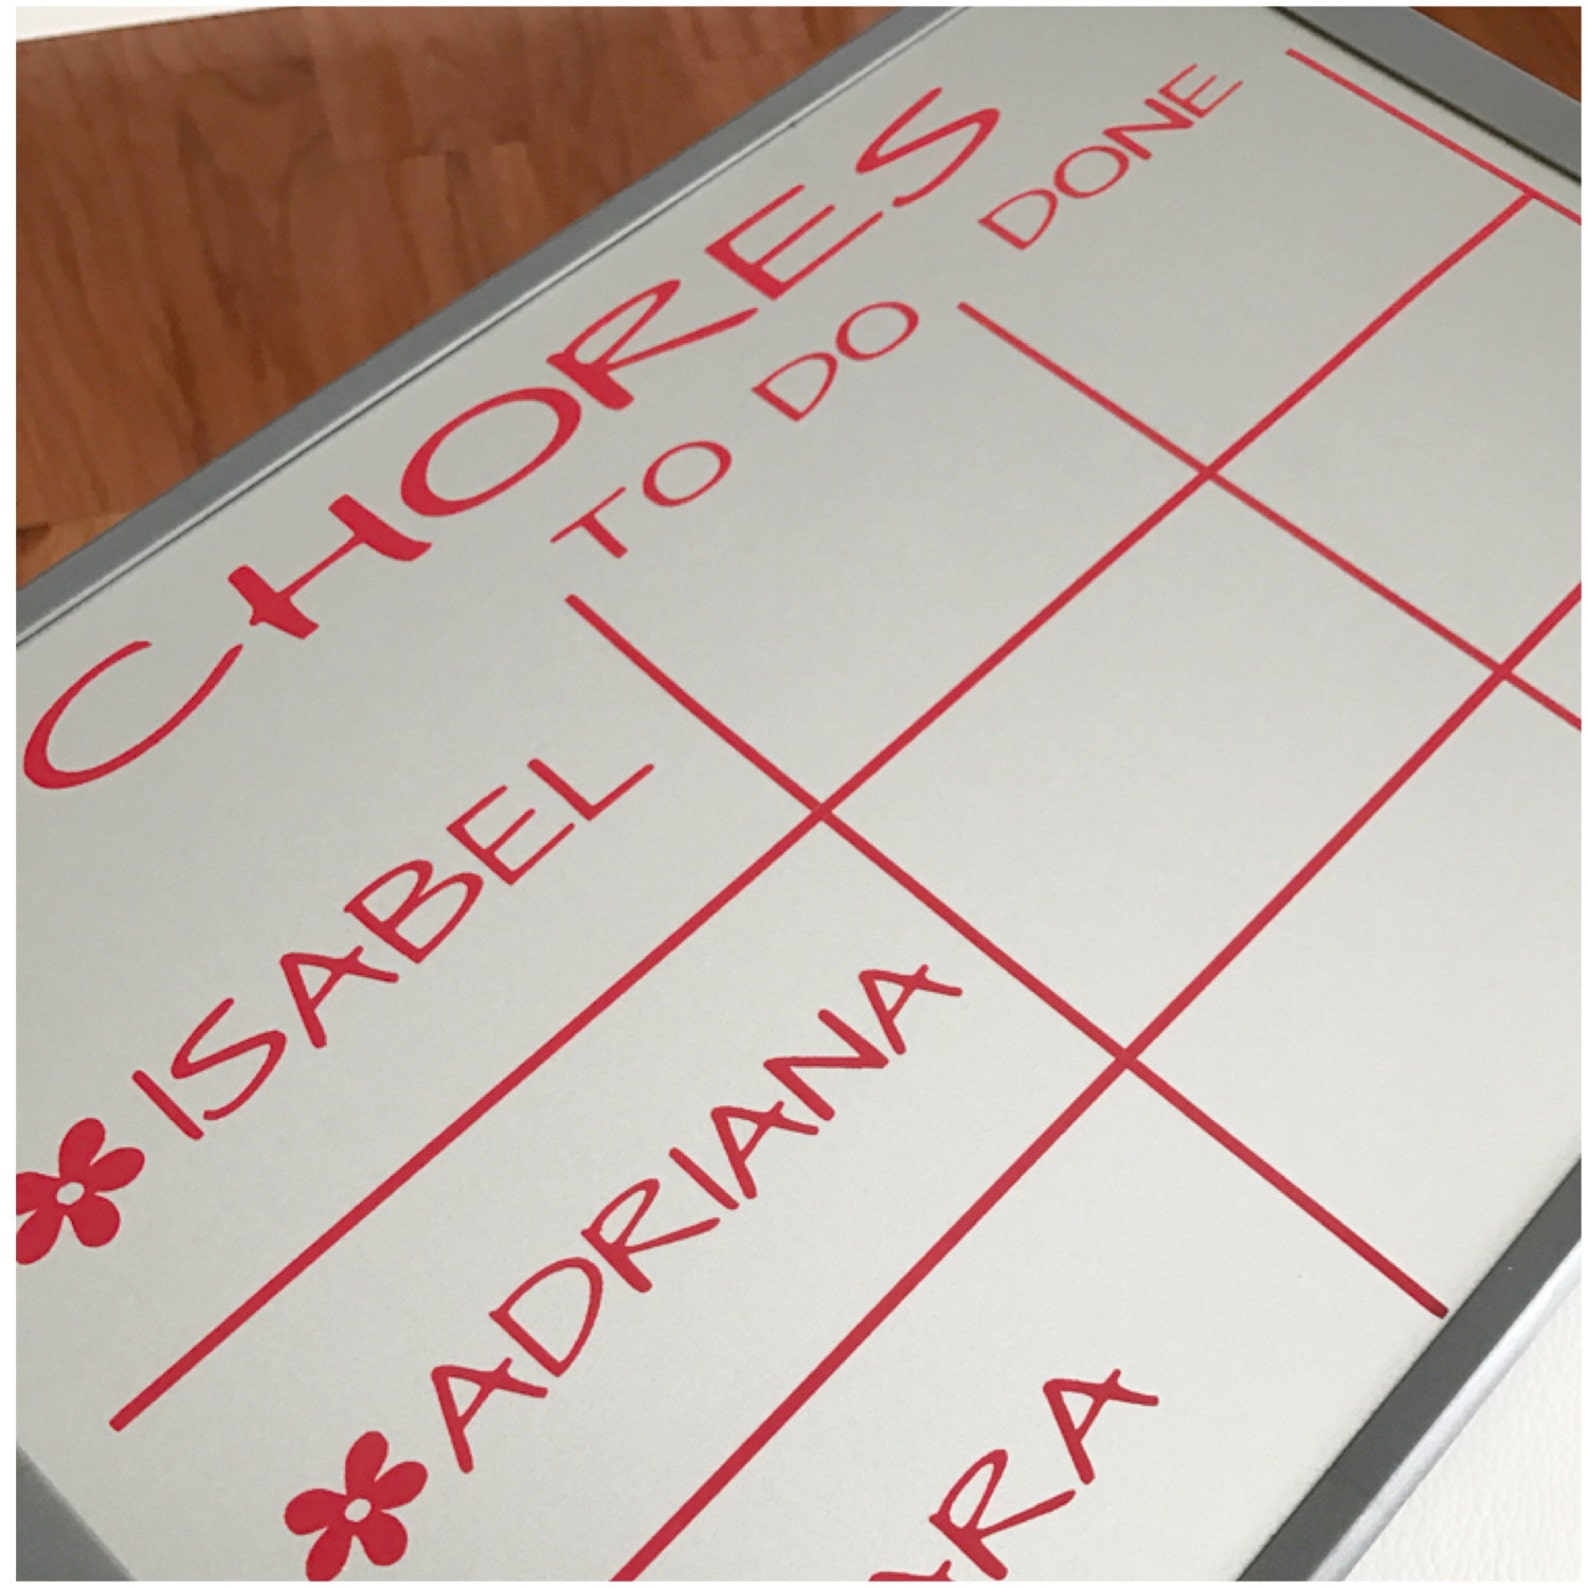 CHORES
TO DO DONE
ISABEL
ADRIANA